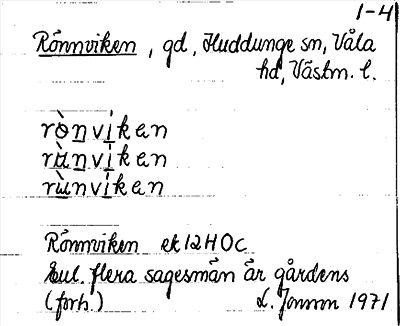 1-4
Rönnviken, gd, Huddunge sn, Våla
hd, Västm. l.
rònvìken
rùnvìken
rùnvìken
Rönnviken ek 12 H0c
Enl. flera sagesmän är gårdens
(forh.) L. Jonson 1971